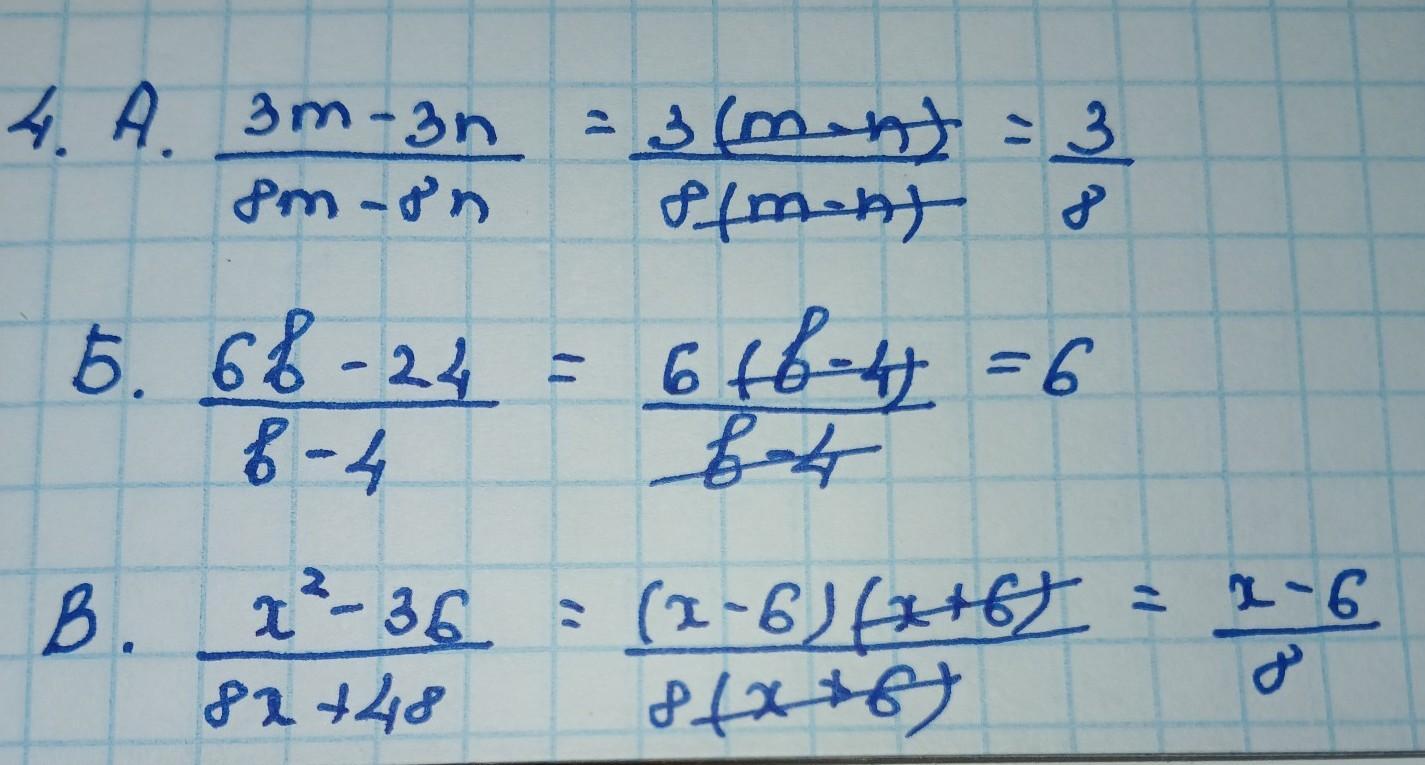 4. А. (3m - 3n)/(8m - 8n) = 3(m - n)/8(m - n) = 3/8
Б. (6b - 24)/(b - 4) = 6(b - 4)/(b - 4) = 6
В. (x² - 36)/(8x + 48) = (x - 6)(x + 6)/8(x + 6) = (x - 6)/8